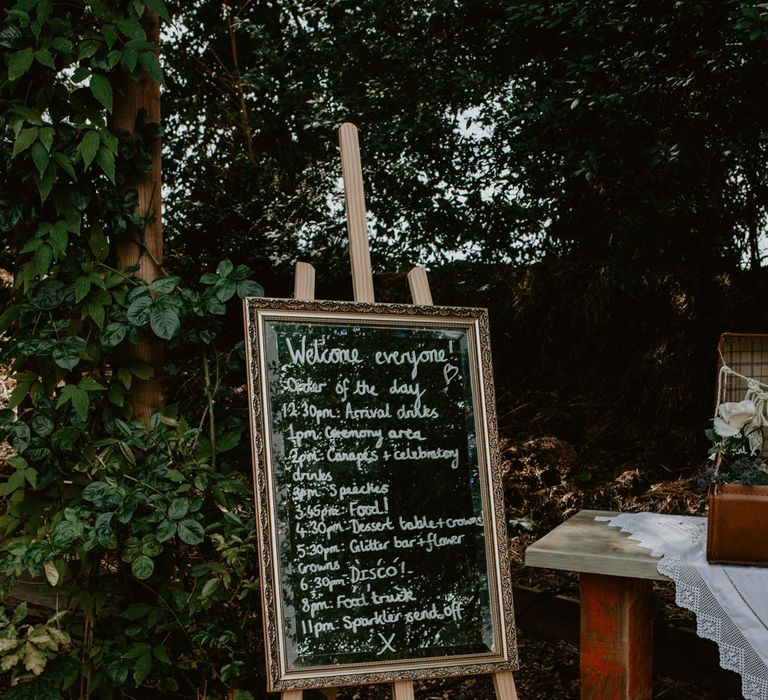 Welcome everyone!
Order of the day ♡
12:30pm: Arrival drinks
1pm: Ceremony area
2pm: Canapes + celebratory
drinks
3pm: Speeches
3:45pm: Food!
4:30pm: Dessert table + crowns
5:30pm: Glitter bar + flower
crowns
6:30pm: DISCO!
8pm: Food truck
11pm: Sparkler send off
X